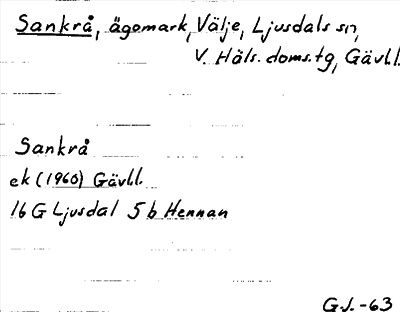 Sankrå, ägomark, Välje, Ljusdals sn,
V. Häls. doms.tg, Gävl.l.
Sankrå
ek (1960) Gävl.l.
16 G Ljusdal 5 b Hennan
G.J. -63